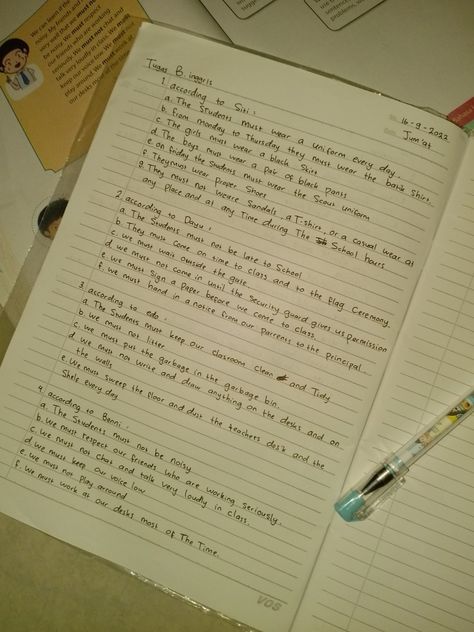 We can learn if the
16-9-2022
Jum'at
Tugas B. inggris
1. according to Siti :
a. The Students must wear a uniform every day.
b. from monday to Thursday they must wear the batik Shirt.
c. The girls must wear a black Skirt
d. The boys must wear a pair of black pants
e. on friday the Students must wear the Scout uniform
f. They must wear proper Shoes
g. They must not wear Sandals, a T-shirt, or a casual wear at
any place and at any Time during The School hours
2. according to Dayu :
a. The Students must not be late to School
b. They must come on time to class and to the Flag Ceremony.
c. we must wait outside the gate.
d. we must not come in until the Security guard gives us permission
e. we must Sign a Paper before we come to class.
f. we must hand in a notice from our Parrents to the principal.
3. according to edo :
a. The Students must keep our classroom clean and Tidy
b. we must not litter
c. we must put the garbage in the garbage bin.
d. we must not write and draw anything on the desks and on
the walls
e. We must sweep the floor and dust the teachers desk and the
Shelf every day
4. according to Benni :
a. The Students must not be noisy
b. we must respect our friends who are working seriously.
c. we must not chat and talk very loudly in class.
d. we must keep our voice low
e. we must not Play arround
f. we must work at our desks most of The Time.
VOS